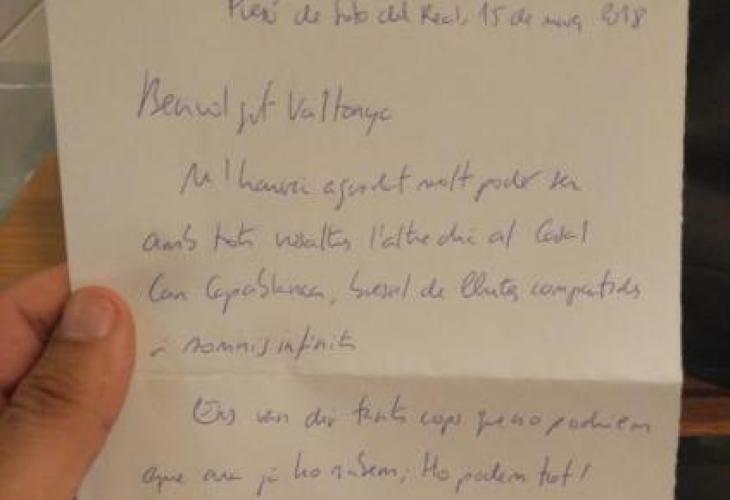 Presó de Soto del Real, 15 de març 2018
Benvolgut Valtonyc
M'hauria agradat molt poder ser
amb tots vosaltres l'altre dia al Casal
Can Capablanca, bressol de lluites compartides
i somnis infinits
Ens van dir tants cops que no podríem
que ara ja ho sabem; Ho podem tot!